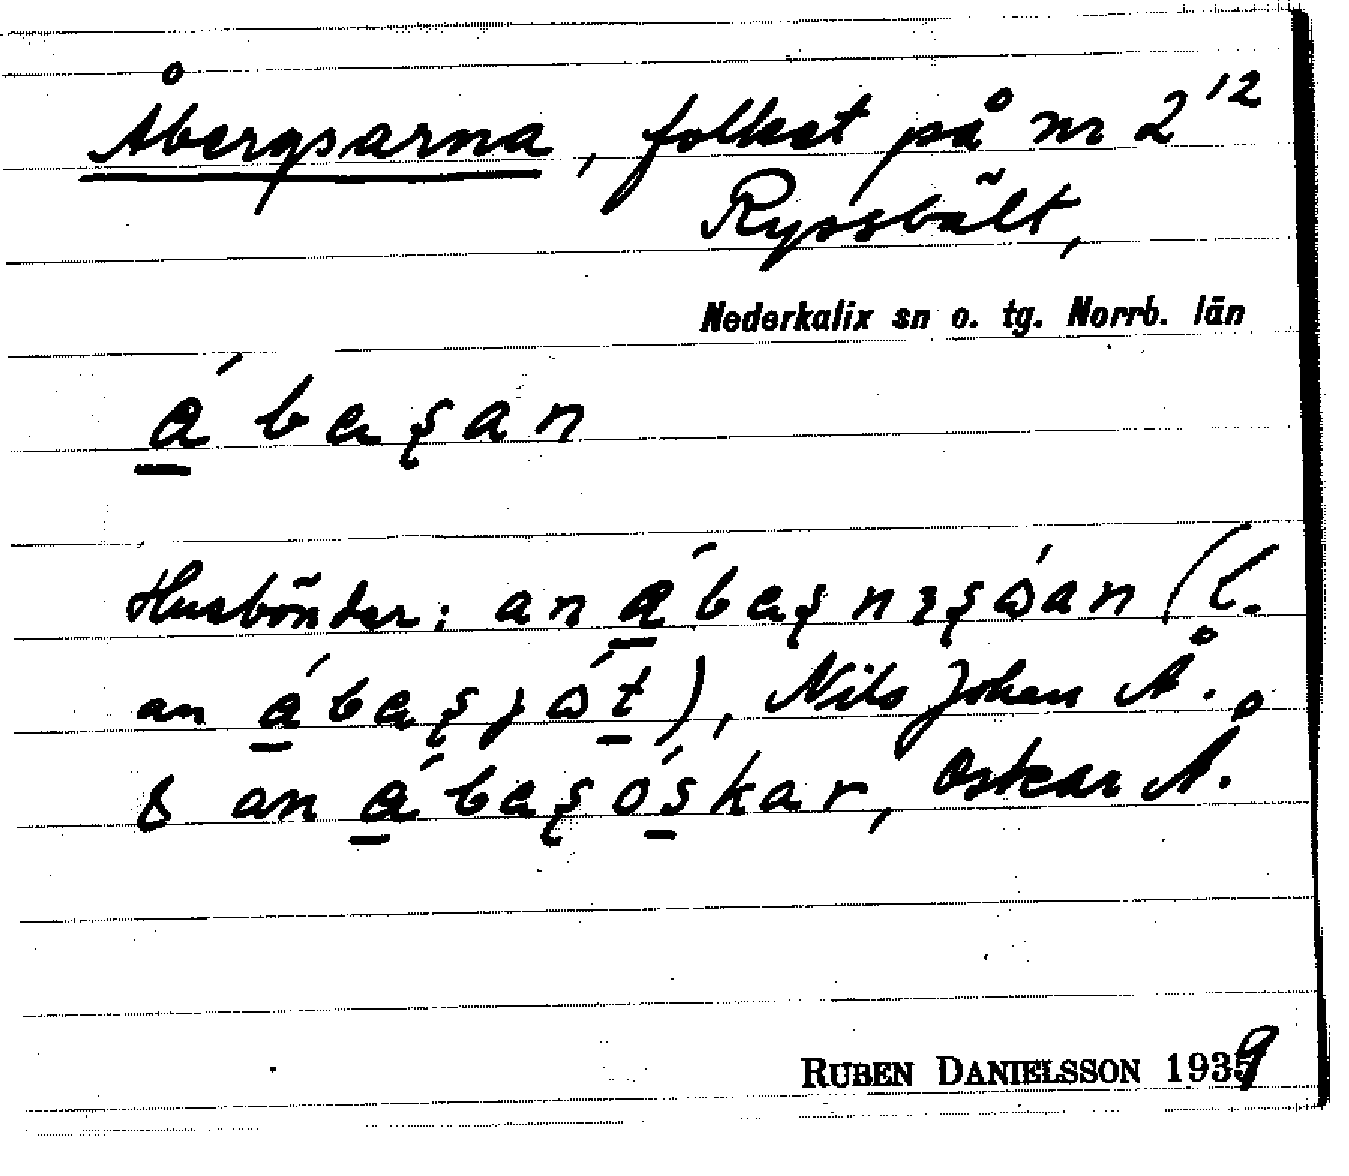 Åbergsarna, folket på nr 2¹²
Ryssbält,
Nederkalix sn o. tg. Norrb. län
á̲ b a ʂ a n
Husbönder: an á̲ b a ʂ n ɿ ʂ ɷ́ a n (l.
an á̲ b a ʂ j ɷ́ t̲), Nils Johan Å.
& an á̲ b a ʂ ó s̲ k a r, Oskar Å.
RUBEN DANIELSSON 1939